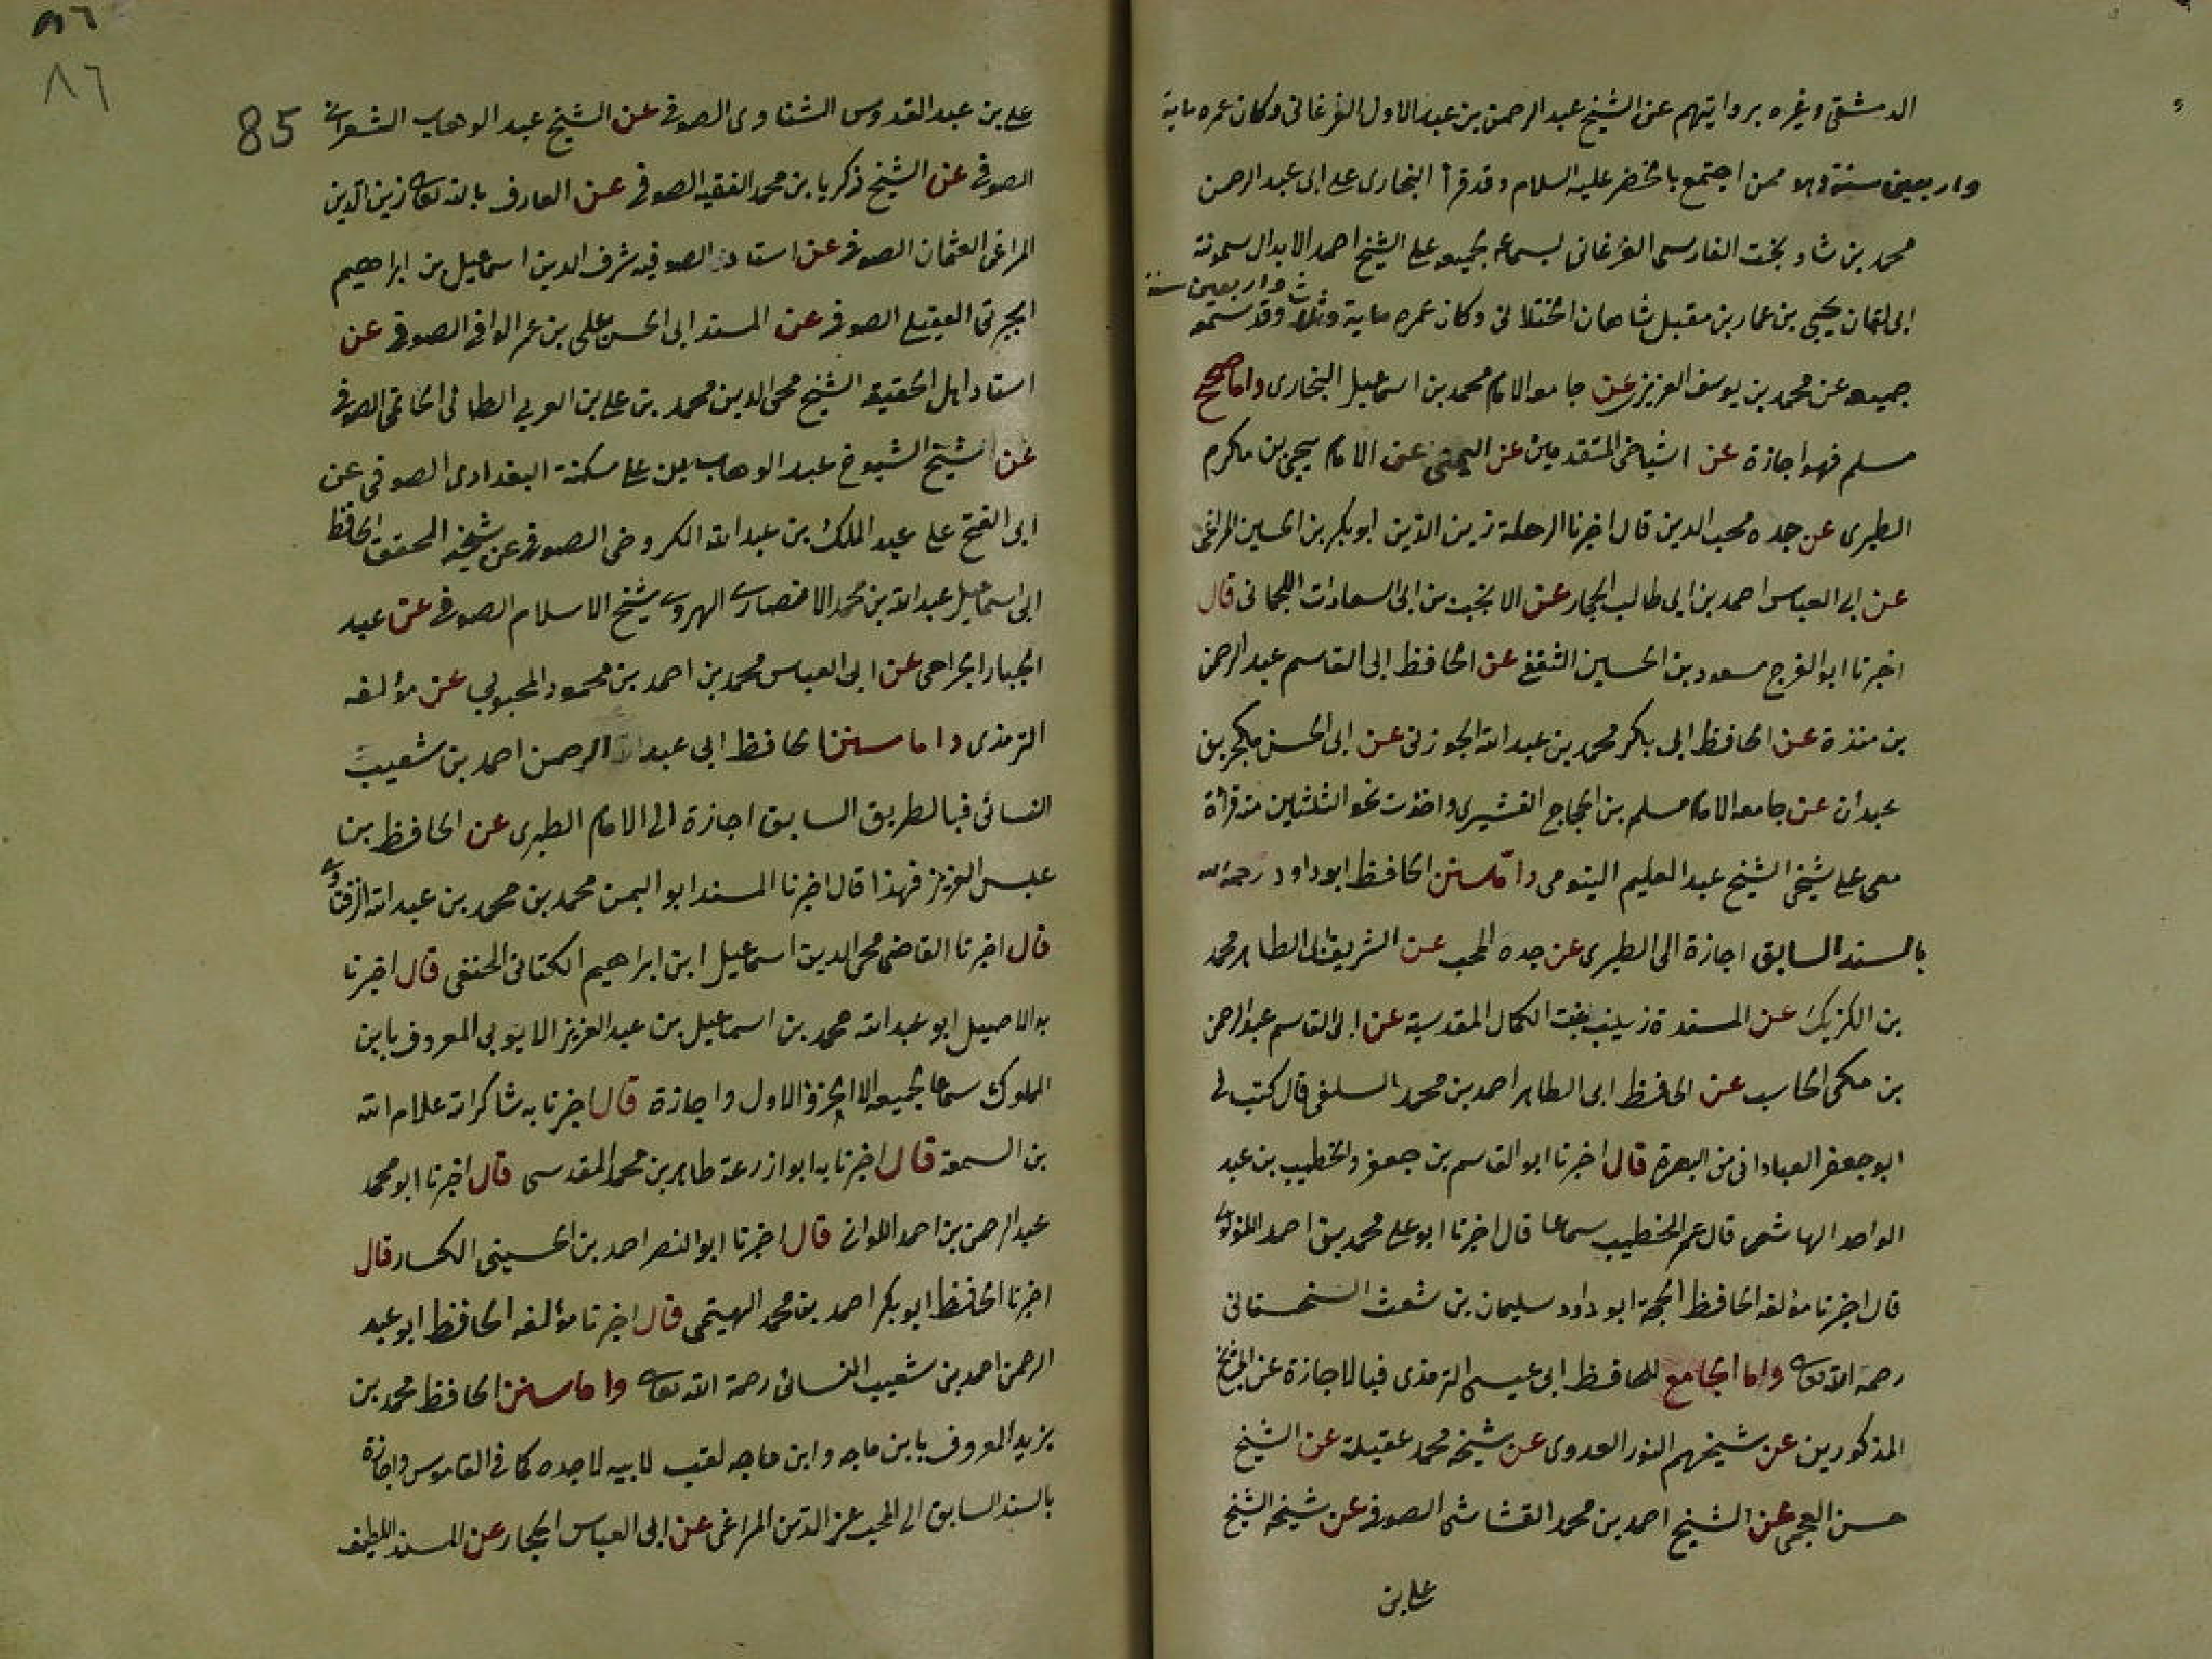 الدمشقى وغيره بروايتهم عن الشيخ عبد الرحمن بن عبد الاول الفرغانى وكان عمره ماية
واربعين سنة وهو ممن اجتمع بالخضر عليه السلام وقد قرأ البخارى على ابى عبد الرحمن
محمد بن شاد بخت الفارسى الفرغانى بسماعه لجميعه على الشيخ احمد الابدال سمرقند
ابى لقمان يحيى بن عمار بن مقبل شاهان الختلانى وكان عمره ماية وثلاث واربعين سنة وقد سمعه
جميعه عن محمد بن يوسف الفريرى عن جامعه الامام محمد بن اسماعيل البخارى واما صحيح
مسلم فهو اجازة عن اشياخى المتقدمين عن اليمنى عن الامام يحيى بن مكرم
الطبرى عن جده محب الدين قال اخبرنا الرحلة زين الدين ابو بكر بن الحسين المراغى
عن ابى العباس احمد بن ابى طالب الحجار عن الانجب بن ابى السعادات اللجمانى قال
اخبرنا ابو الفرج مسعود بن الحسين الثقفى عن الحافظ ابى القاسم عبد الرحمن
بن مندة عن الحافظ ابى بكر محمد بن عبد الله الجوزنى عن ابى الحسن مكى بن
عبدان عن جامعه الامام مسلم بن الحجاج القشيرى واخذت نحو الثلثين منه قرأة
معى على شيخى الشيخ عبد العليم الينومى واما سنن الحافظ ابو داود رحمه الله
بالسند السابق اجازة الى الطبرى عن جده المحب عن الشريف ابى الطاهر محمد
بن الكزيك عن المسندة زينب بنت الكمال المقدسية عن ابى القاسم عبد الرحمن
بن مكى الحاسب عن الحافظ ابى الطاهر احمد بن محمد السلفى قال كتب لى
ابو جعفر العبادانى من البصرة قال اخبرنا ابو القاسم بن جعفر والخطيب بن عبد
الواحد الهاشمى قال عم الخطيب سماعا قال اخبرنا ابو على محمد بن احمد اللؤلؤى
قال اخبرنا مؤلفه الحافظ الحجة ابو داود سليمان بن شعث السنحستانى
رحمه الله تعالى واما الجامع للحافظ ابى عيسى الترمذى فبالاجازة عن المشايخ
المذكورين عن شيخهم النور العدوى عن شيخه محمد عقيلة عن الشيخ
حسن العجمى عن الشيخ احمد بن محمد القشاشى الصوفى عن شيخه الشيخ
على بن
٨٦
85
على بن عبد القدوس الشناوى الصوفى عن الشيخ عبد الوهاب الشعرانى
الصوفى عن الشيخ زكريا بن محمد الفقيه الصوفى عن العارف بالله تعالى زين الدين
المراغى العثمان الصوفى عن استاذ الصوفيه شرف الدين اسماعيل بن ابراهيم
الجبرتى العقيلى الصوفى عن المسند ابى الحسن على بن عمر الوافى الصوفى عن
استاد اهل الحقيقة الشيخ محى الدين محمد بن على بن العربى الطائى الحاتمى الصوفى
عن شيخ الشيوخ عبد الوهاب بن على سكنة البغدادى الصوفى عن
ابى الفتح على عبد الملك بن عبد الله الكروخى الصوفى عن شيخه المحقق الحافظ
ابى اسماعيل عبد الله بن محمد الانصارى الهروى شيخ الاسلام الصوفى عن عبد
الجبار الجراحى عن ابى العباس محمد بن احمد بن محمود المحبوبى عن مؤلفه
الترمذى واما سنن الحافظ ابى عبد الرحمن احمد بن شعيب
النسائى فبالطريق السابق اجازة الى الامام الطبرى عن الحافظ بن
عبس العزيز فهذا قال اخبرنا المسند ابو اليمن محمد بن محمد بن عبد الله الزفتاوى
قال اخبرنا القاضى محى الدين اسماعيل ابن ابراهيم الكنانى الحنفى قال اخبرنا
به الاصيل ابو عبد الله محمد بن اسماعيل بن عبد العزيز الايوبى المعروف بابن
الملوك سماعا لجميعه الا الجزؤ الاول واجازة قال اخبرنا به شاكر الله علام الله
بن السمعة قال اخبرنا به ابو ازرعة طاهر بن محمد المقدسى قال اخبرنا ابو محمد
عبد الرحمن بن احمد اللوانى قال اخبرنا ابو النصر احمد بن الحسينى الكسار قال
اخبرنا الحافظ ابو بكر احمد بن محمد الهيتمى قال اخبرنا مؤلفه الحافظ ابو عبد
الرحمن احمد بن شعيب النسائى رحمة الله تعالى واما سنن الحافظ محمد بن
يزيد المعروف بابن ماجه وابن ماجه لقب لابيه لا جده كما فى القاموس واجازة
بالسند السابق الى المحب عز الدين المراغى عن ابى العباس الحجار عن المسند اللطيف